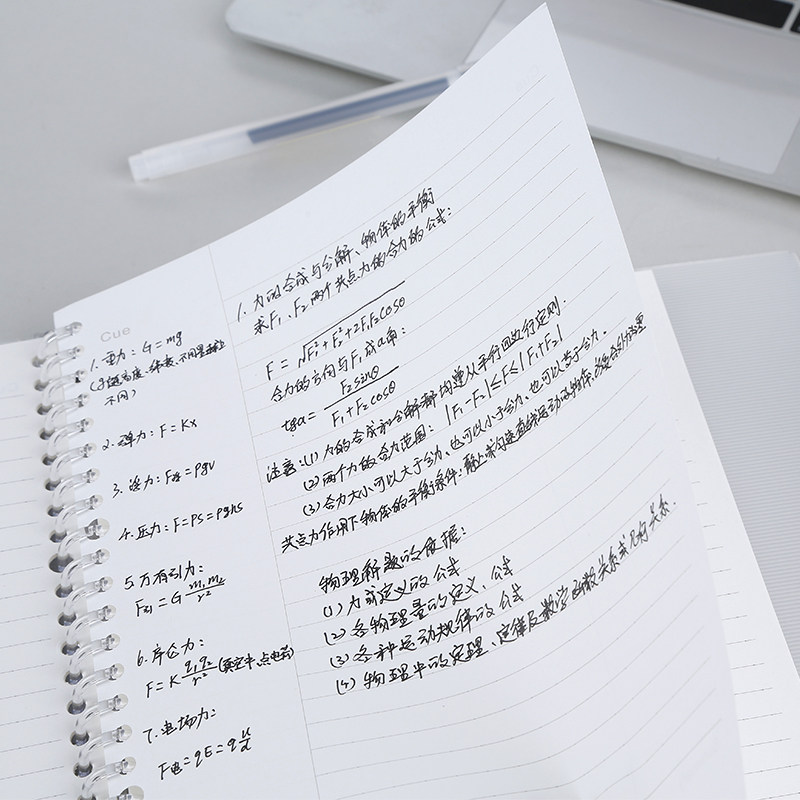 Cue
1.重力:G=mg
(g随高度、纬度、不同
不同)
2.弹力:F=Kx
3.浮力:F浮=ρgv
4.压力:F=PS=ρghs
5.万有引力:
F引=G m₁m₂/r²
6.库仑力:
F=K q₁q₂/r² (真空中、点电荷)
7.电场力:
F电=qE=q u/d
1.力的合成与分解、物体的平衡
求F₁、F₂两个共点力的合力的公式:
F=√F₁²+F₂²+2F₁F₂cosθ
合力的方向与F₁成α角:
tgα= F₂sinθ/F₁+F₂cosθ
注意:(1)力的合成和分解都均遵从平行四边行定则.
(2)两个力的合力范围: |F₁-F₂|≤F≤|F₁+F₂|
(3)合力大小可以大于分力、也可以小于分力、也可以等于分力.
共点力作用下物体的平衡条件:静止或匀速直线运动的物体、所受合外力为零
物理解题的依据:
(1)力或定义的公式
(2)各物理量的定义、公式
(3)各种运动规律的公式
(4)物理中的定理、定律及数学函数关系或几何关系.